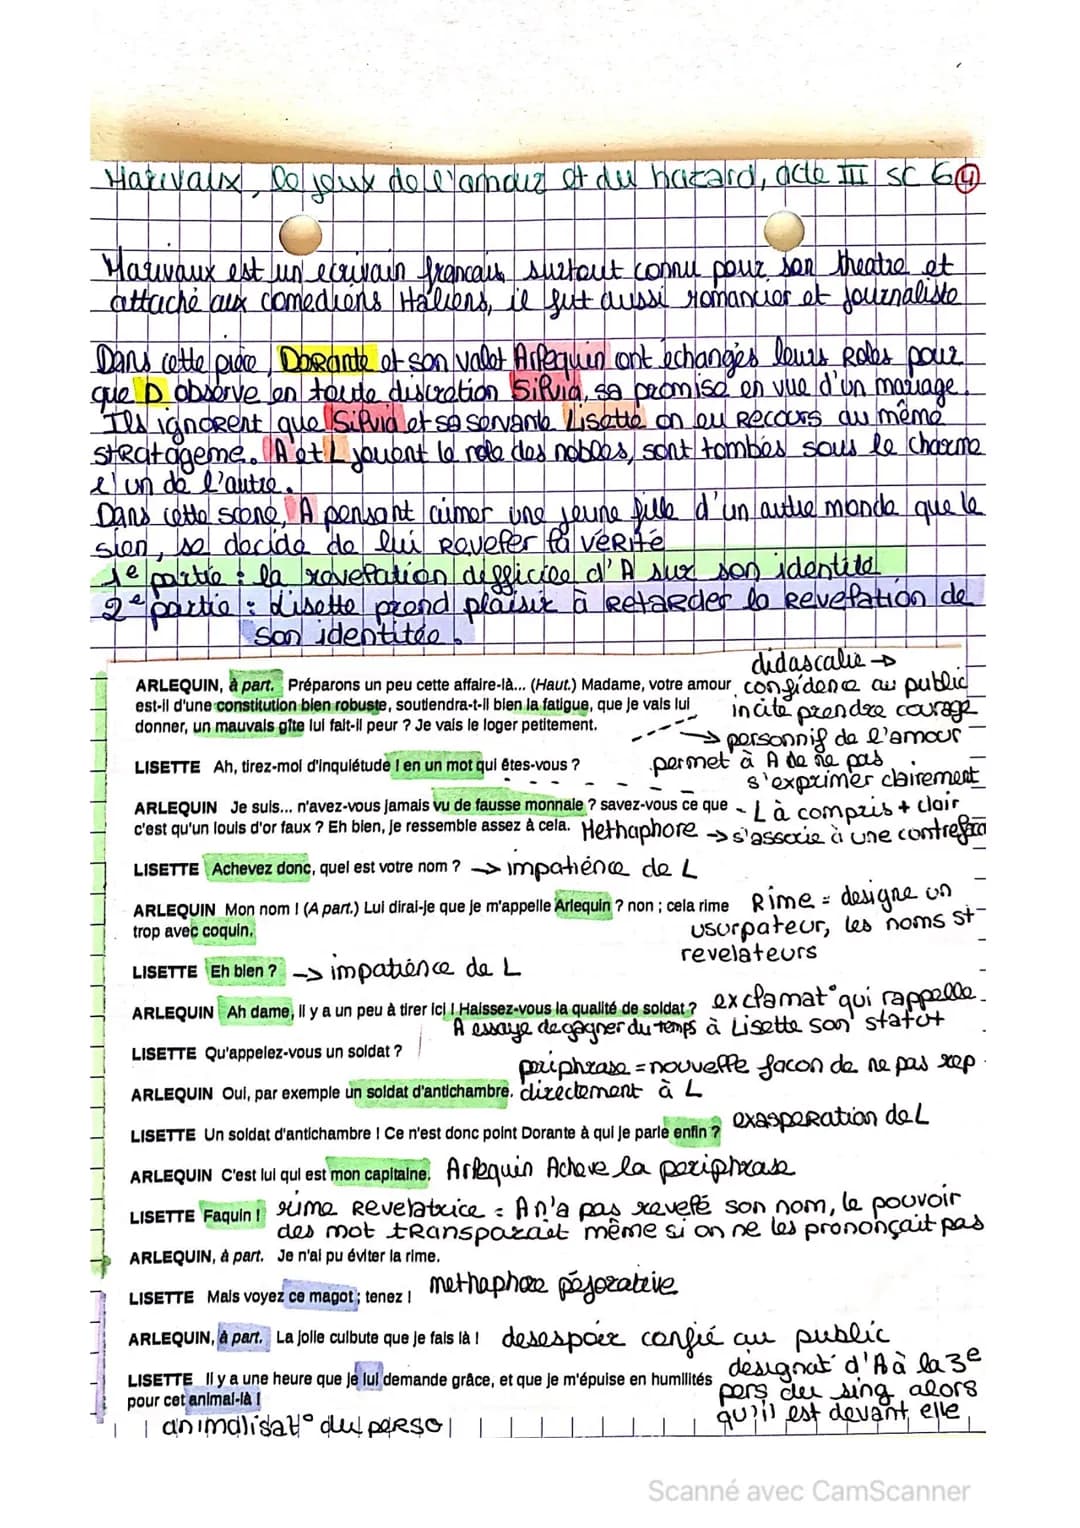 Marivaux, le jeux de l'amour et du hazard, acte III sc 6 4
Marivaux est un ecrivain francais surtout connu pour son theatre et
attaché aux comediens Italiens, il fut aussi romancier et journaliste
Dans cette pièce, Dorante et son valet Arlequin ont échangés leurs Roles pour
que D observe en toute discretion Silvia, sa promise en vue d'un mariage.
Ils ignorent que Silvia et sa servante Lisette on eu Recours au même
stratageme. A et L jouent le role des nobles, sont tombés sous le charme
l'un de l'autre.
Dans cette scene, A pensant aimer une jeune fille d'un autre monde que le
sien, se decide de lui Reveler la vérité
1e partie : la revelation difficile d'A sur son identité
2e partie : Lisette prend plaisir à Retarder la Revelation de
son identitée.
didascalie →
ARLEQUIN, à part. Préparons un peu cette affaire-là... (Haut.) Madame, votre amour confidence au public
est-il d'une constitution bien robuste, soutiendra-t-il bien la fatigue, que je vais lui incite prendre courage
donner, un mauvais gîte lui fait-il peur ? Je vais le loger petitement. → personnif de l'amour
permet à A de ne pas
LISETTE Ah, tirez-moi d'inquiétude ! en un mot qui êtes-vous ? s'exprimer clairement
ARLEQUIN Je suis... n'avez-vous jamais vu de fausse monnaie ? savez-vous ce que - L à compris + clair
c'est qu'un louis d'or faux ? Eh bien, je ressemble assez à cela. Methaphore → s'associe à une contrefaç
LISETTE Achevez donc, quel est votre nom ? → impatience de L
ARLEQUIN Mon nom ! (A part.) Lui dirai-je que je m'appelle Arlequin ? non ; cela rime Rime = designe un
trop avec coquin. usurpateur, les noms st
revelateurs
LISETTE Eh bien ? → impatience de L
ARLEQUIN Ah dame, il y a un peu à tirer ici ! Haïssez-vous la qualité de soldat ? exclamat° qui rappelle
A essaye de gagner du temps à Lisette son statut
LISETTE Qu'appelez-vous un soldat ?
periphrase = nouvelle facon de ne pas rep
ARLEQUIN Oui, par exemple un soldat d'antichambre. directement à L
LISETTE Un soldat d'antichambre ! Ce n'est donc point Dorante à qui je parle enfin ? exasperation de L
ARLEQUIN C'est lui qui est mon capitaine. Arlequin Acheve la periphrase
LISETTE Faquin ! rime Revelatrice = A n'a pas revelé son nom, le pouvoir
des mot transparait même si on ne les prononçait pas
ARLEQUIN, à part. Je n'ai pu éviter la rime.
LISETTE Mais voyez ce magot ; tenez ! methaphore péjorative
ARLEQUIN, à part. La jolie culbute que je fais là ! desespoir confié au public
LISETTE Il y a une heure que je lui demande grâce, et que je m'épuise en humilités désignat° d'A à la 3e
pour cet animal-là ! pers du sing alors
qu'il est devant elle
animalisat° du perso
Scanné avec CamScanner